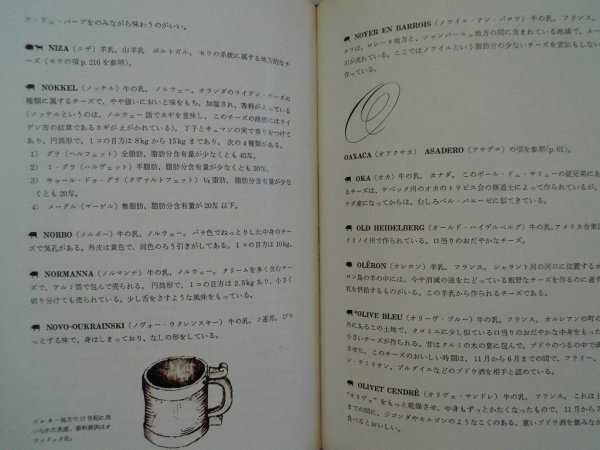 マ・ドュ・バーブをのみながら味わうのがいい。
NIZA（ニザ）羊乳，山羊乳　ポルトガル。セラの系統に属する地方的なチーズ（セラの項p. 216を参照）。
NOKKEL（ノッケル）牛の乳，ノルウェー。オランダのライデン・チーズの
種類に属するチーズで，やや強いにおいと味をもち，加塩され，香料が入っている
（ノッケルというのは，ノルウェー語でカギを意味し，このチーズの
ディン市の紋章であるカギがえがかれている）。丁子とキュマンの実で香りをつけて
あり，円筒形で，1コの目方は8kgから15kgまであり，次の4種類がある。
1） グラ（ヘルフェット）全脂肪，脂肪分含有量が少なくとも45％。
2） ミ・グラ（ハルフェット）半脂肪，脂肪分含有量が少なくとも30％。
3） キャール・ドゥ・グラ（クヴァルトフェット）¼脂肪，脂肪分含有量が少な
くとも20％。
4） メーグル（マーデル）無脂肪，脂肪分含有量が20％以下。
NORBO（ノルボー）牛の乳，ノルウェー。バラ色でねっとりした中身のチー
ズで気孔がある。外皮は黄色で，同色のろう引きがしてある。1コの目方は10kg。
NORMANNA（ノルマンナ）牛の乳，ノルウェー。クリームを多く含むチー
ズで，アルミ箔で包んで売られる。円筒形で，1コの目方は2.5kgあり，小さく
切り分けても売られている。少し舌をさすような風味をもっている。
NOVO-OUKRAINSKI（ノヴォー・ウクレンスキー）牛の乳，ソ連邦。ぴり
っとする味で，身はしまっており，なしの形をしている。
地方で17世紀に用
いられた乳壺。資料提供はオ
社。
NOYER EN BARROIS（ノワイエ・アン・バロワ）牛の乳，フランス。
ロワは，ロレーヌ地方と，シャンパーニュ地方の間に含まれている地域で，ムー
われている。ここではノワイエという脂肪分の少ないチーズを宣伝もしない
作っている。
O
OAXACA（オアクサカ） ASADERO（アサデロ）の項を参照（p. 61）。
OKA（オカ）牛の乳，カナダ。このポール・デュ・サリューの従兄弟にあ
は，ケベック州のオカのトラピスト会の修道士によって作られているが，
ナダ産になってからは，むしろベル・パエーゼに似てきている。
OLD HEIDELBERG（オールド・ハイデルベルグ）牛の乳，アメリカ合衆国
イリノイ州で作られている。口当りのおだやかなチーズ。
OLÉRON（オレロン）羊乳，フランス。シャラント川の河口に位置するオ
ロン島の羊の中には，今や消滅の途をたどっている粗野なチーズを作るのに適す
乳を供給するものがいる。この羊乳から作られるチーズである。
*OLIVE BLEU（オリーヴ・ブルー）牛の乳，フランス。オルレアンの町の
外にあるこの土地で，クロミエに少し似ている口当りのおだやかな中身をもった
小さいチーズが作られている。昔はクルミの木の葉に包んで，ブドウのつるの中で成
させた。このチーズのおいしい時期は，11月から6月までの間で，フラリー，
ン・テミリオン，ブルグイエなどのブドウ酒を相手と認めている。
OLIVET CENDRÉ（オリヴェ・サンドレ）牛の乳，フランス。これは上
“オリヴェ”をもっと乾燥させ，中身もずっとかたくなったもので，11月から7
までの間に，ジゴンダやモルゴンのようなこくのある，重いブドウ酒を飲みなが
食べるとおいしい。